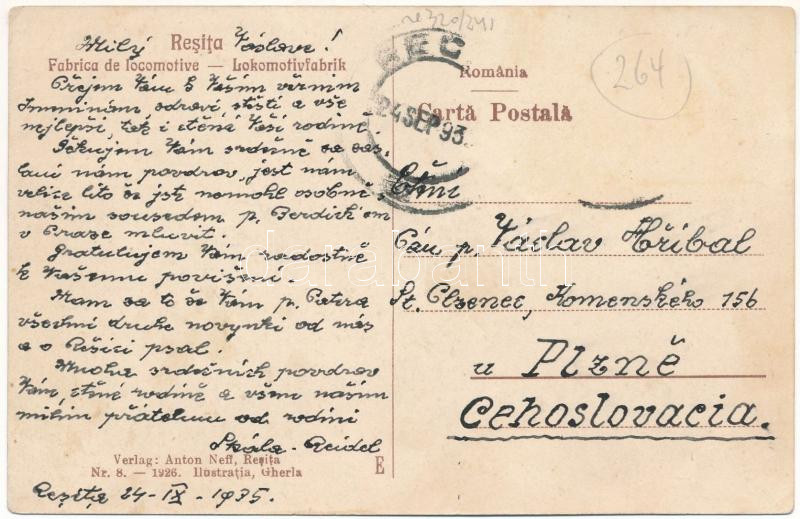 Milý Václave!
Reșița
Fabrica de locomotive — Lokomotivfabrik
Přejem Vám k Vašim věrnim
Imminám zdraví stěstí a vše
nejlepší, též i ctěné Vaší rodině.
Děkujem Vám srdečně za zas-
laní nám povdrov, jest nám
velice lito že jste nemohl osobně
našim sousedem p. Berdich'em
v Praze mluvit.
Gratulujem Vám radostně
k Vašemu povišení.
Mam za to že Vám p. Petra
všechni druhe novynki od nás
a o Rešici psal.
Mnoho srdečních povdrov
Vám, ctěné rodině a všem našim
milim přátelum od rodini
Skála - Reidel
Verlag: Anton Neff, Reșița
Nr. 8. — 1926. Ilustrația, Gherla
E
Reșița 24-IX-1935.
24 SEP. 93
264
România
Cartă Postală
Ctěni
Pán p. Václav Hříbal
St. Plzenec, Komenského 156
u Plzně
Cehoslovacia.
darabanth